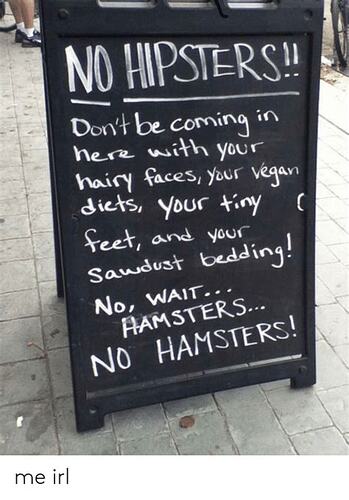 NO HIPSTERS!!
Don't be coming in
here with your
hairy faces, your vegan
diets, your tiny
feet, and your
sawdust bedding!
No, WAIT...
HAMSTERS...
NO HAMSTERS!
me irl